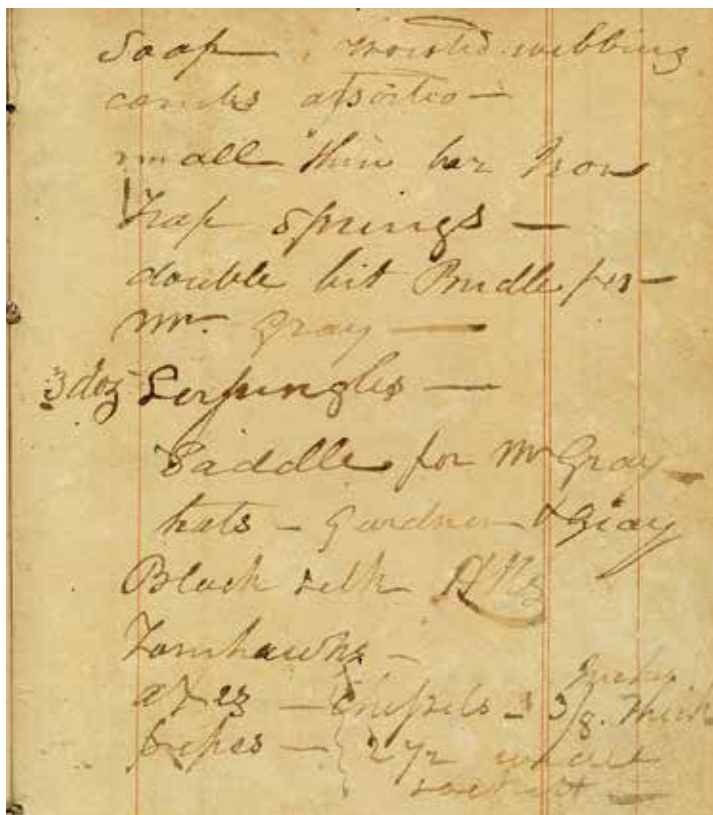 Soap worsted webbing
combs assorted —
small thin bar Iron
Trap Springs —
double bit Bridle for
Mr. Gray —
3 doz Sersingles —
Saddle for Mr Gray
hats — Gardner & Gray
Black silk
Tomhawks —
axes — Chissels — 3/8. thick
2 1/2 inches